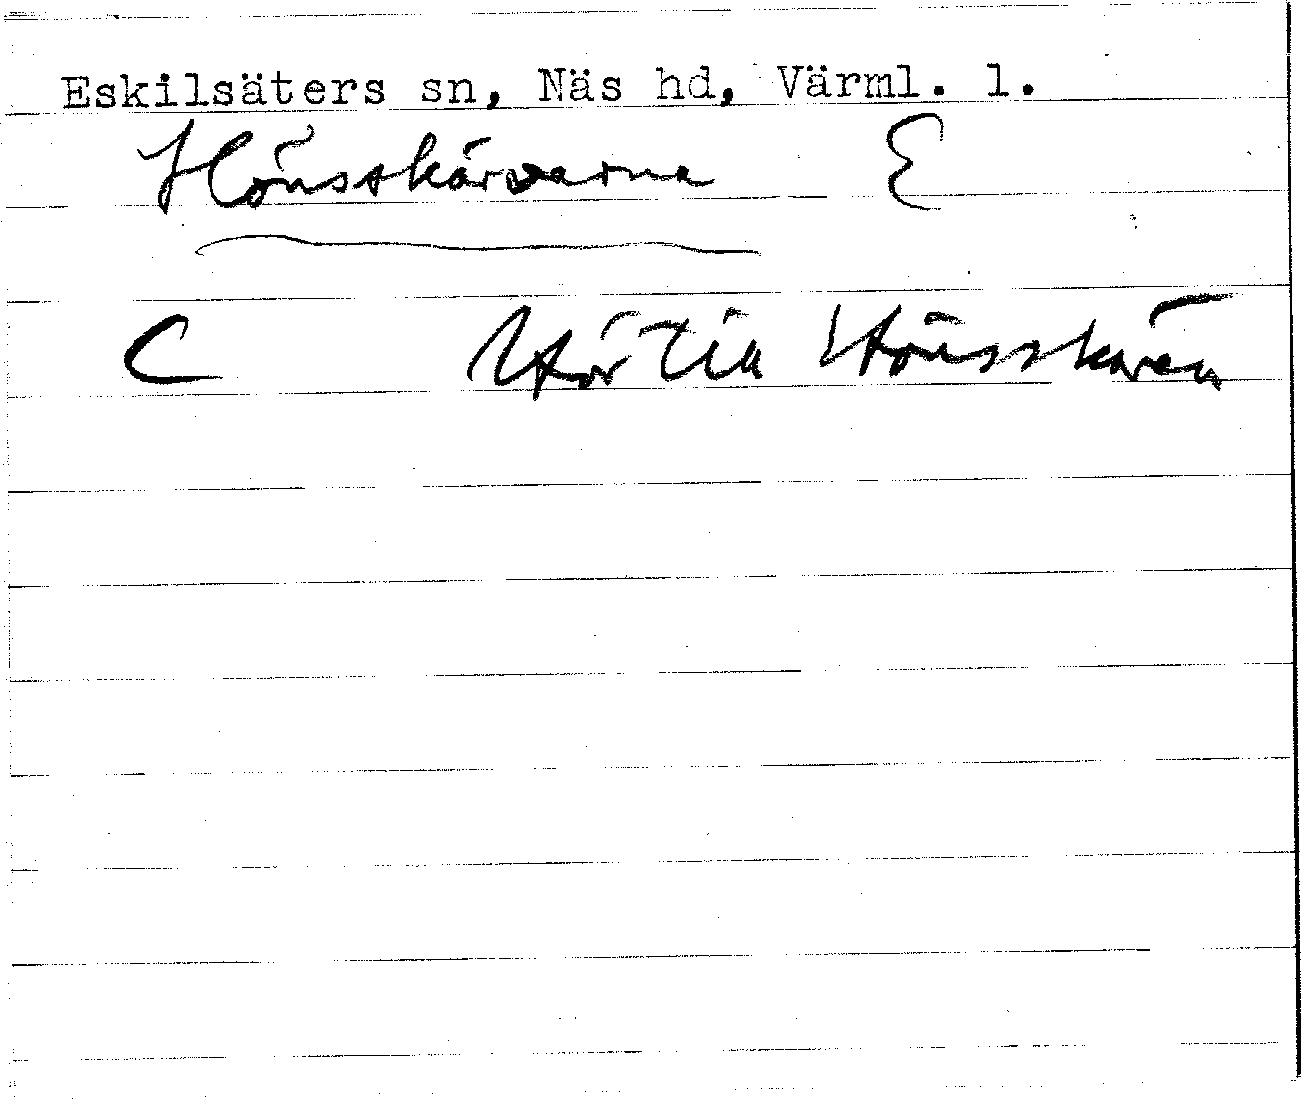 Eskilsäters sn, Näs hd, Värml. l.
Hönsskärvarna E
C Hör till Hönsskären